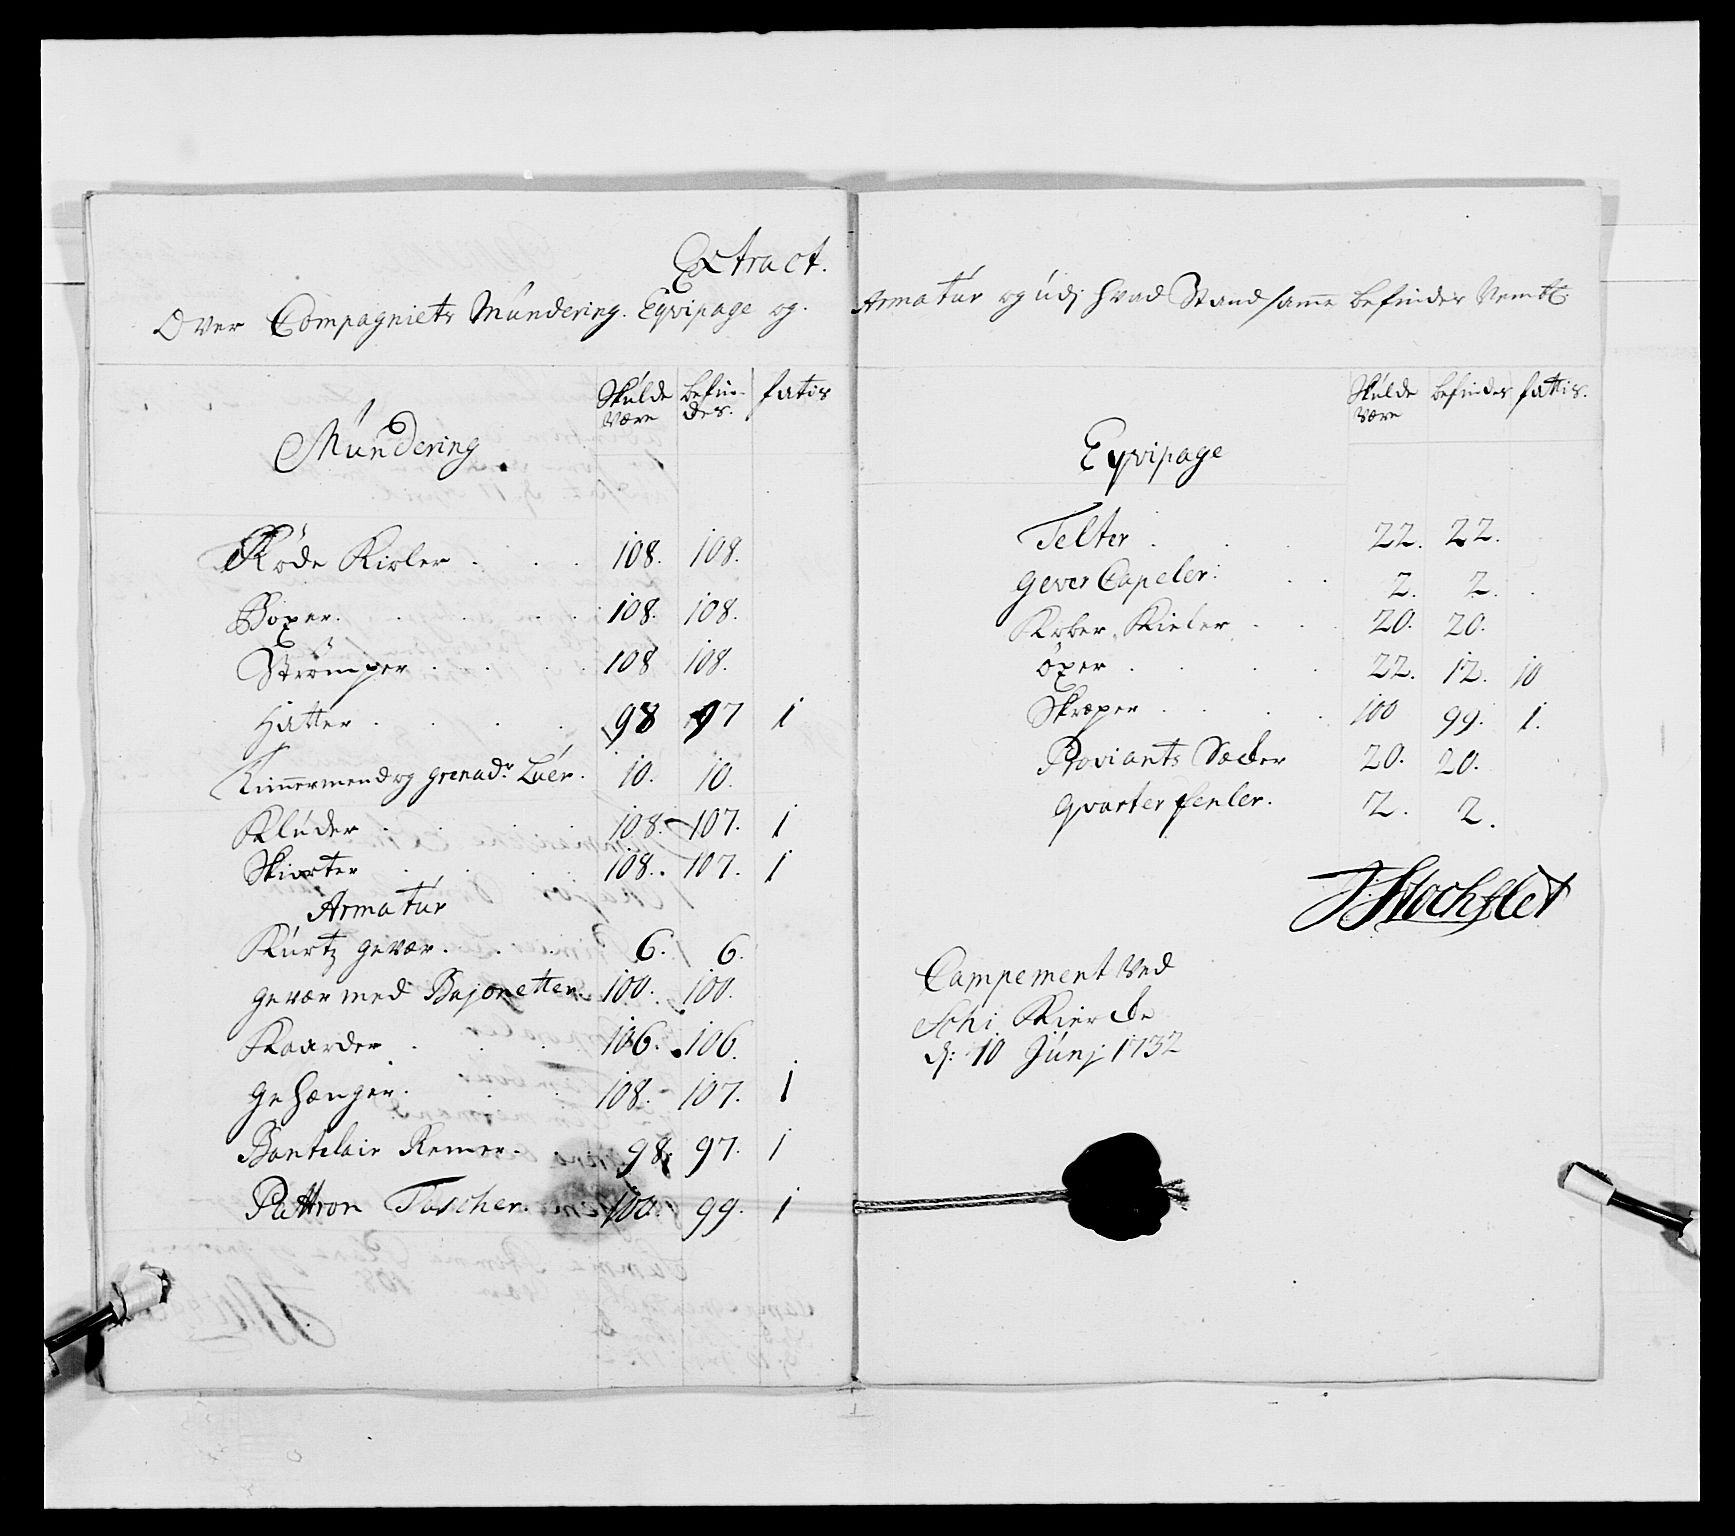 Extract.
Over Compagniets Mundering. Eqvipage og. Armatúr og údj hvad Stand samme befindes Nembl:
Mundering
Skulde være
befin-des.
fatis
Røde Kioler . . . 108. 108.
Boxer. . . . . 108. 108.
Strømper . . . 108 108.
Hatter . . . . 98 97 1
Timmermend og grenad.r Lúer. 10. 10.
Klúder . . . 108. 107. 1
Skiorter . . . 108. 107. 1
Armatúr
Kúrtz gevær. . . 6. 6.
gevær med Bajonetter. 100. 100.
Kaarder . . . 106. 106.
gehænger. . . 108. 107. 1
Bantelair Remer. 98. 97. 1
Pattron Tascher. 100. 99. 1
Eqvipage
Skúlde være
befindes
fattis.
Telter . . . 22. 22.
gever Capeler. . . 2. 2.
Kober Kieler . . . 20. 20.
öxer . . . . 22. 12. 10
Skræper . . . . 100 99. 1.
Proviants Sæcker 20. 20.
qvarter fenler. 2. 2.
Stochflet
Campement Ved
Schi Kiercke
d: 10 Júnj 1732